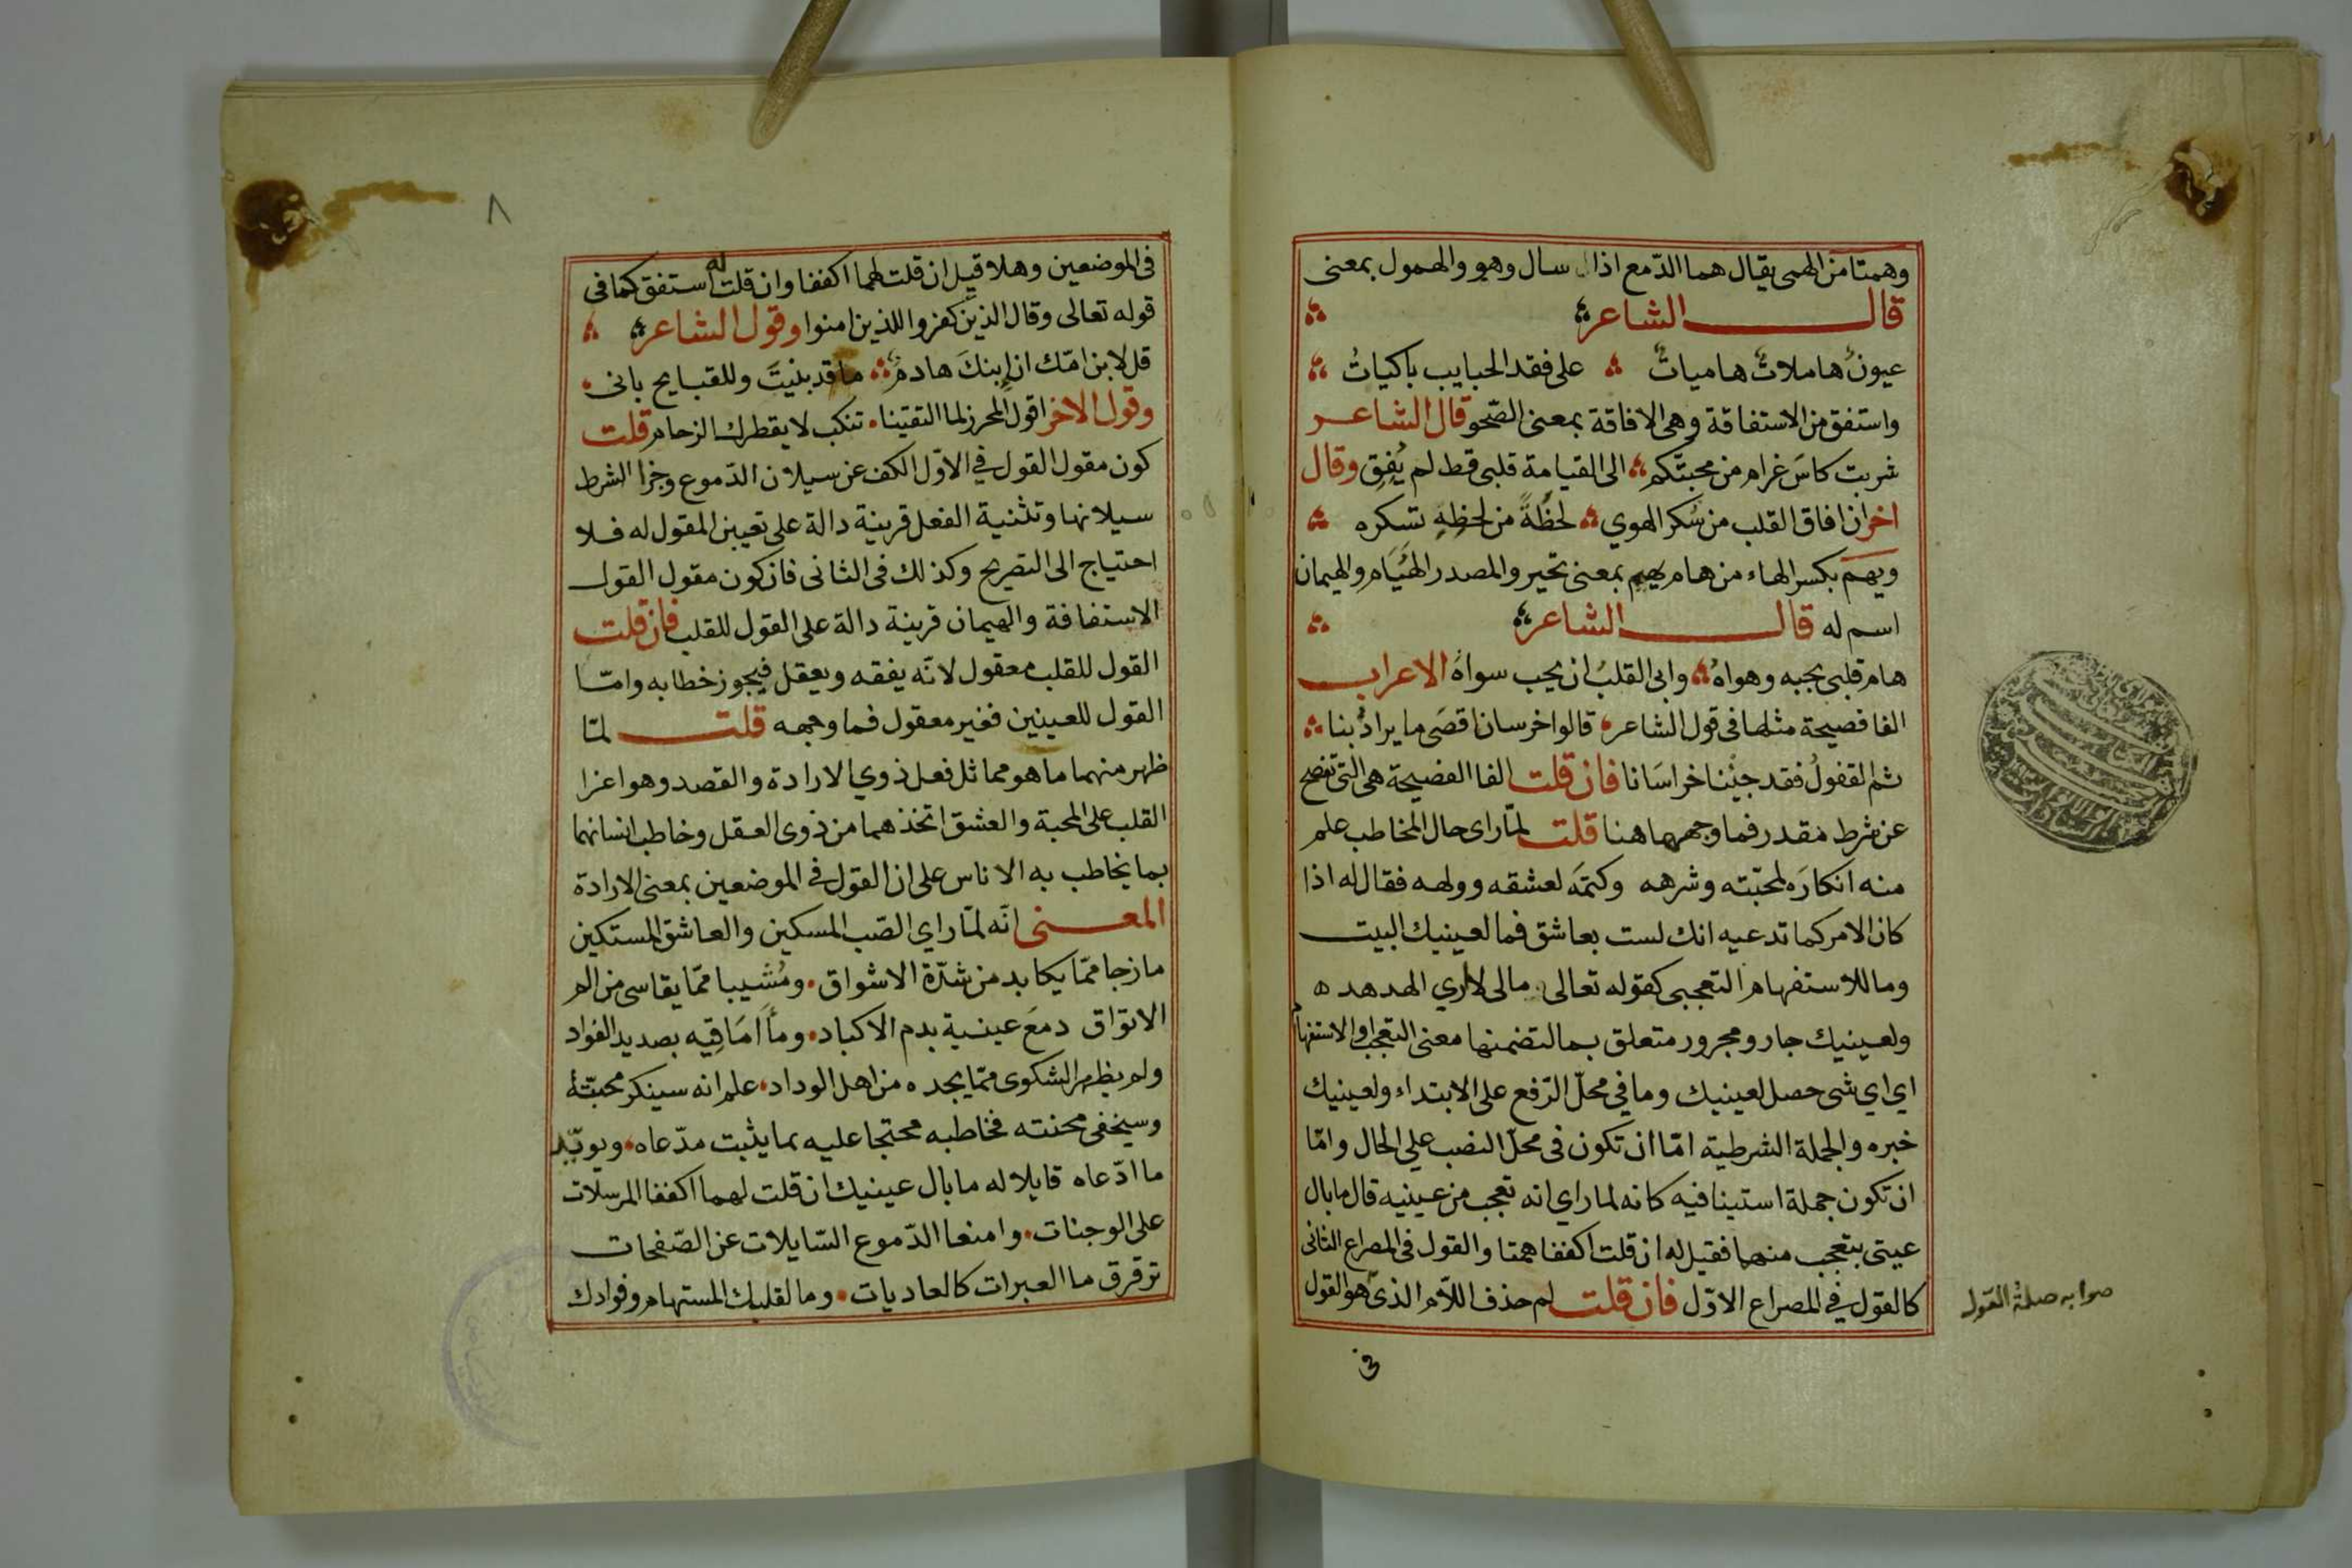 وهمتا من الهمى يقال هما الدّمع اذا سال وهو والهمول بمعنى
قال الشاعر
عيونٌ هاملاتٌ هامياتٌ على فقد الحبايب باكياتُ
واستفق من الاستفاقة وهى الافاقة بمعنى الصّحو قال الشاعر
شربت كاسَ غرام من محبّتكم الى القيامة قلبى قط لم يُفِق وقال
اخر ان افاق القلب من سُكر الهوي لحظةً من لحظِهِ تسكره
ويهم بكسر الهاء من هام يهيم بمعنى تحير والمصدر الهُيَام والهيمان
اسم له قال الشاعر
هام قلبى بحبه وهواهُ وابى القلبُ ان يحب سواهُ الاعراب
الفا فصيحة مثلها فى قول الشاعر قالوا خرسان اقصَى ما يرادُ بنا
ثم القفولُ فقد جيْنا خراسَانا فان قلت الفا الفصيحة هى التى تفصح
عن شرط مقدر فما وجهها هنا قلت لمّا راى حال المخاطب علم
منه انكارَه لمحبّته وشرهه وكتمَه لعشقه وولهه فقال له اذا
كان الامر كما تدعيه انك لست بعاشق فما لعينيك البيت
وما للاستفهام التعجبى كقوله تعالى مالى لا اري الهدهد ه
ولعينيك جار ومجرور متعلق بما لتضمنها معنى التعجب او الاستفهام
اي اي شى حصل لعينيك وما في محلّ الرّفع على الابتداء ولعينيك
خبره والجملة الشرطية امّا ان تكون فى محلّ النصب علي الحال وامّا
ان تكون جملة استينافيه كانه لما راي انه تعجب من عينيه قال ما بال
عيتى يتعجب منهما فقيل له ان قلت اكففا همتا والقول فى المصراع الثانى
كالقول في المصراع الاوّل فان قلت لم حذف اللاّم الذى هو القول
صوابه صلة القول
فى
٨
فى الموضعين وهلا قيل ان قلت لهما اكففا وان قلت له استفق كما فى
قوله تعالى وقال الذين كفروا للذين امنوا وقول الشاعر
قل لابن امّك ان ابنكَ هادمُ ما قد بنيتَ وللقبايح بانى
وقول الاخر اقول لمحرز لما التقينا تنكب لا يقطرك الزحام قلت
كون مقول القول في الاوّل الكف عن سيلان الدّموع وجزا الشرط
سيلانها وتثنية الفعل قرينة دالة على تعيين المقول له فلا
احتياج الى التصريح وكذلك فى الثانى فان كون مقول القول
الاستفاقة والهيمان قرينة دالة على القول للقلب فان قلت
القول للقلب معقول لانّه يفقه ويعقل فيجوز خطابه وامّا
القول للعينين فغير معقول فما وجهه قلت لمّا
ظهر منهما ما هو مماثل فعل ذوي الارادة والقصد وهو اغرا
القلب على المحبة والعشق اتخذهما من ذوى العقل وخاطب انسانهما
بما يخاطب به الاناس على ان القول في الموضعين بمعنى الارادة
المعنى انّه لمّا راي الصّب المسكين والعاشق المستكين
مازجا ممّا يكابد من شدّة الاشواق ومُشيبا ممّا يقاسى من الم
الاتواق دمعَ عينية بدم الاكباد وماَ امَاقِيه بصديد الفواد
ولم يظهر الشكوى ممّا يجده من اهل الوداد علم انه سينكر محبّتهُ
وسيخفى محنته فخاطبه محتجا عليه بما يثبت مدّعاه ويويّد
ما ادّعاه قايلا له ما بال عينيك ان قلت لهما اكففا المرسلات
على الوجنات وامنعا الدّموع السّايلات عن الصّفحات
ترقرق ما العبرات كالعاديات وما لقلبك المستهام وفوادك